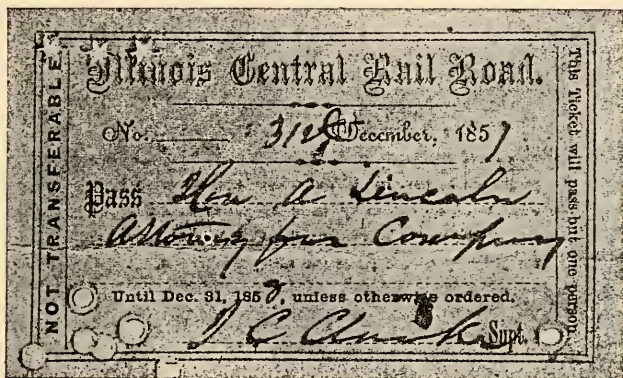 Illinois Central Rail Road.
No. 31st December, 1857
Pass Hon A Lincoln
Attorney for Company
Until Dec. 31, 1858, unless otherwise ordered.
J C Clark Supt.
NOT TRANSFERABLE
This Ticket will pass but one person